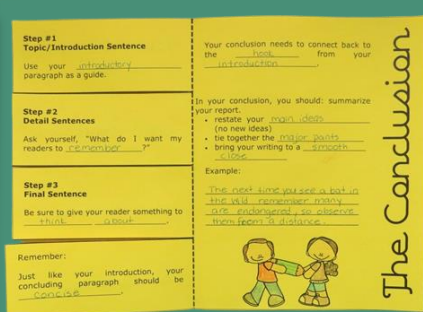 Step #1
Topic/Introduction Sentence
Use your introductory
paragraph as a guide.
Step #2
Detail Sentences
Ask yourself, "What do I want my
readers to remember ?"
Step #3
Final Sentence
Be sure to give your reader something to
think about .
Remember:
Just like your introduction, your
concluding paragraph should be
concise .
Your conclusion needs to connect back to
the hook from your
introduction .
In your conclusion, you should: summarize
your report.
• restate your main ideas
(no new ideas)
• tie together the major points
• bring your writing to a smooth
close
Example:
The next time you see a bat in
the wild remember many
are endangered, so observe
them from a distance.
The Conclusion